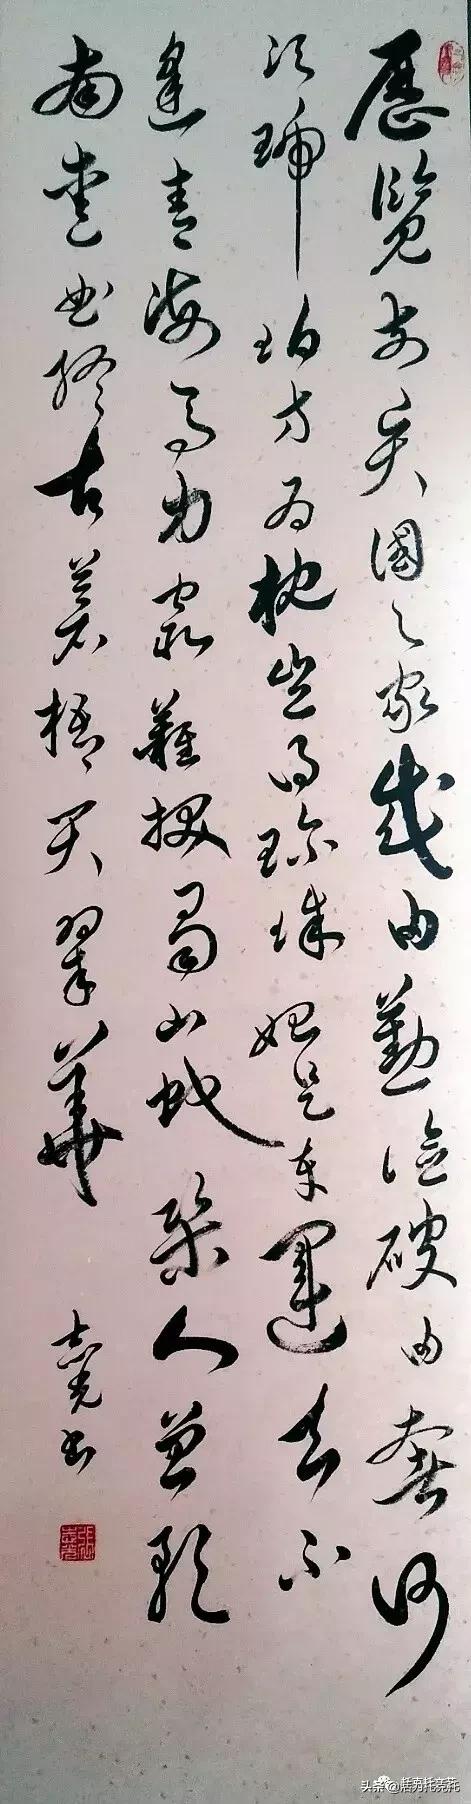 歷覽前賢國之家成由勤儉破由奢何
須琥珀方为枕豈得珍珠始是车運去不
逢青海马力窮難拔蜀山蛇幾人曾預
南薰曲終古蒼梧哭翠華
志光书
头条@活力托克托